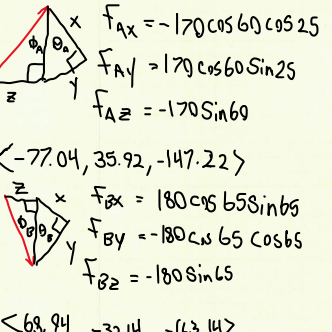 x
ϕA θA
y
z
fAx = -170cos60cos25
fAy = 170cos60Sin25
fAz = -170Sin60
<-77.04, 35.92, -147.22>
z x
ϕB θB
y
fBx = 180cos65Sin65
fBy = -180cos65 cos65
fBz = -180sin65